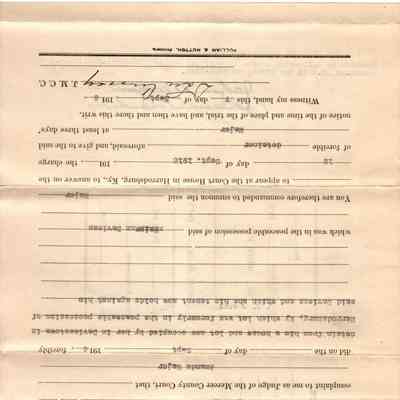 complaint to me as Judge of the Mercer County Court, that
Amanda Major
did on the day of Sept 191 , forcibly
detain from him a house and lot now occupied by her in in
Harrodsburg, Ky. which lot was formerly in the peaceable possession of
said Davises and which she his tenant now holds against him
which was in the peaceable possession of said Davises
You are therefore commanded to summon the said Major
to appear at the Court House in Harrodsburg, Ky., to answer on the
12 day of Sept. 1912 191 the charge
of forcible detainer aforesaid, and give to the said
Major at least three days'
notice of the time and place of the trial, and have then and there this writ.
Witness my hand, this 7 day of Sept 191
J.M.C.C.
PULLIAM & HUTTON, Printers